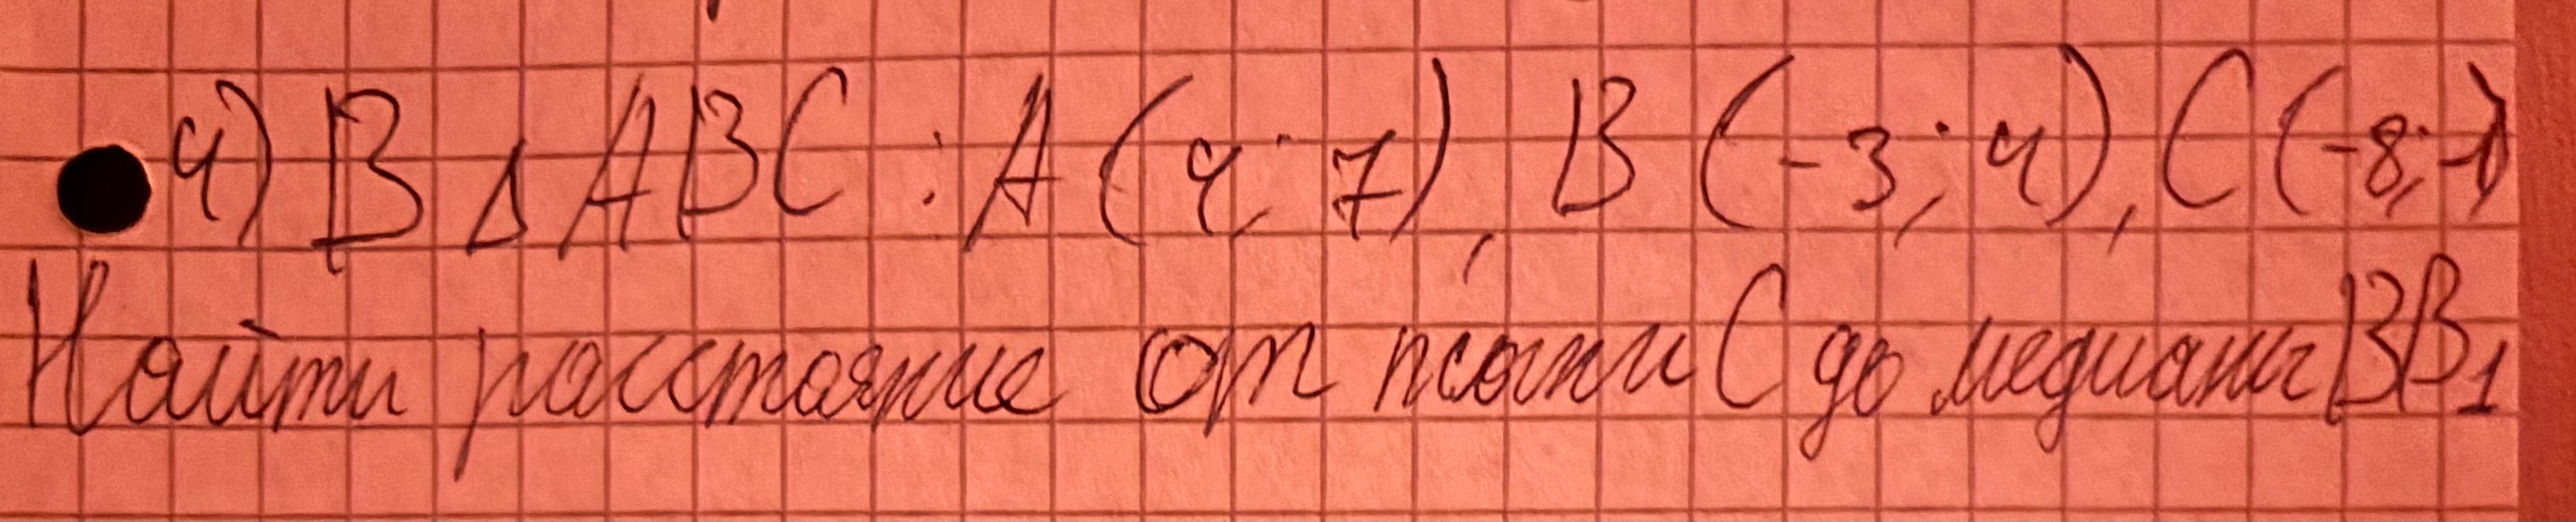 4) В △ ABC : A (4; 7), B (-3; 4), C (-8; -1)
Найти расстояние от точки C до медианы BB₁